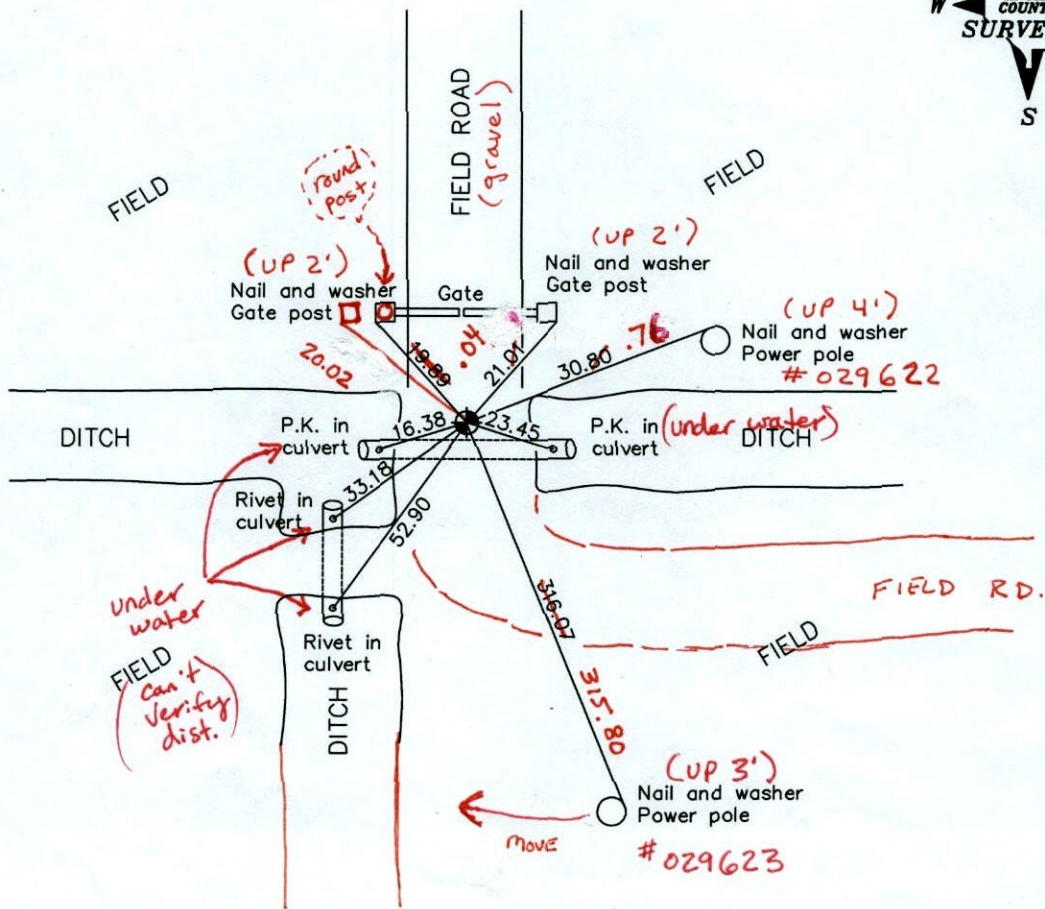 W
COUNT
SURVE
S
FIELD ROAD
(gravel)
FIELD
FIELD
round
post
(UP 2')
Nail and washer
Gate post
Gate
(UP 2')
Nail and washer
Gate post
(UP 4')
Nail and washer
Power pole
# 029622
20.02
19.89
.04
21.01
30.80
.76
DITCH
P.K. in
culvert
16.38
23.45
P.K. in
culvert
(under water)
DITCH
33.18
Rivet in
culvert
52.90
under
water
FIELD RD.
316.07
315.80
FIELD
Rivet in
culvert
FIELD
(can't
verify
dist.)
DITCH
(UP 3')
Nail and washer
Power pole
MOVE
# 029623